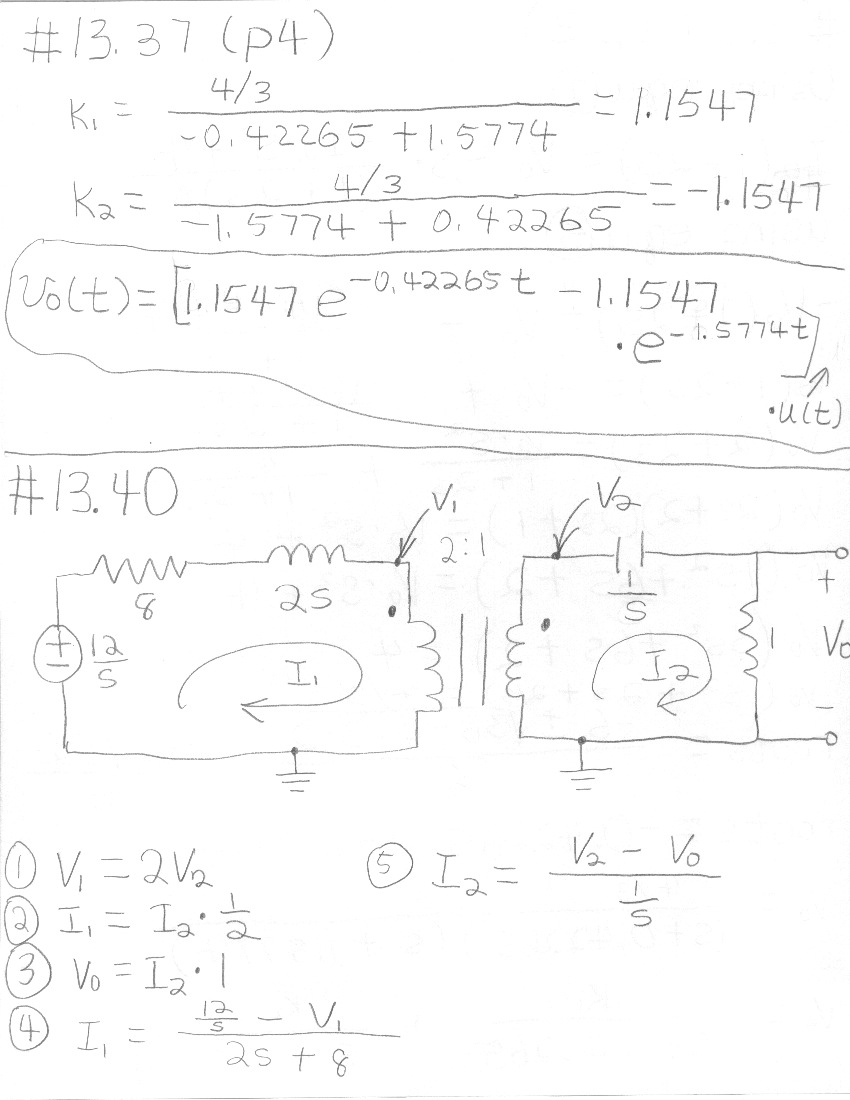 #13.37 (p4)
K₁ = (4/3)/(-0.42265 + 1.5774) = 1.1547
K₂ = (4/3)/(-1.5774 + 0.42265) = -1.1547
v₀(t) = [1.1547 e^(-0.42265t) - 1.1547
· e^(-1.5774t)]
· u(t)
#13.40
V₁ V₂
2:1
8 2s 1/s
+
+ - 12/s I₁ I₂ 1 V₀
-
① V₁ = 2V₂
② I₁ = I₂ · 1/2
③ V₀ = I₂ · 1
④ I₁ = (12/s - V₁)/(2s + 8)
⑤ I₂ = (V₂ - V₀)/(1/s)